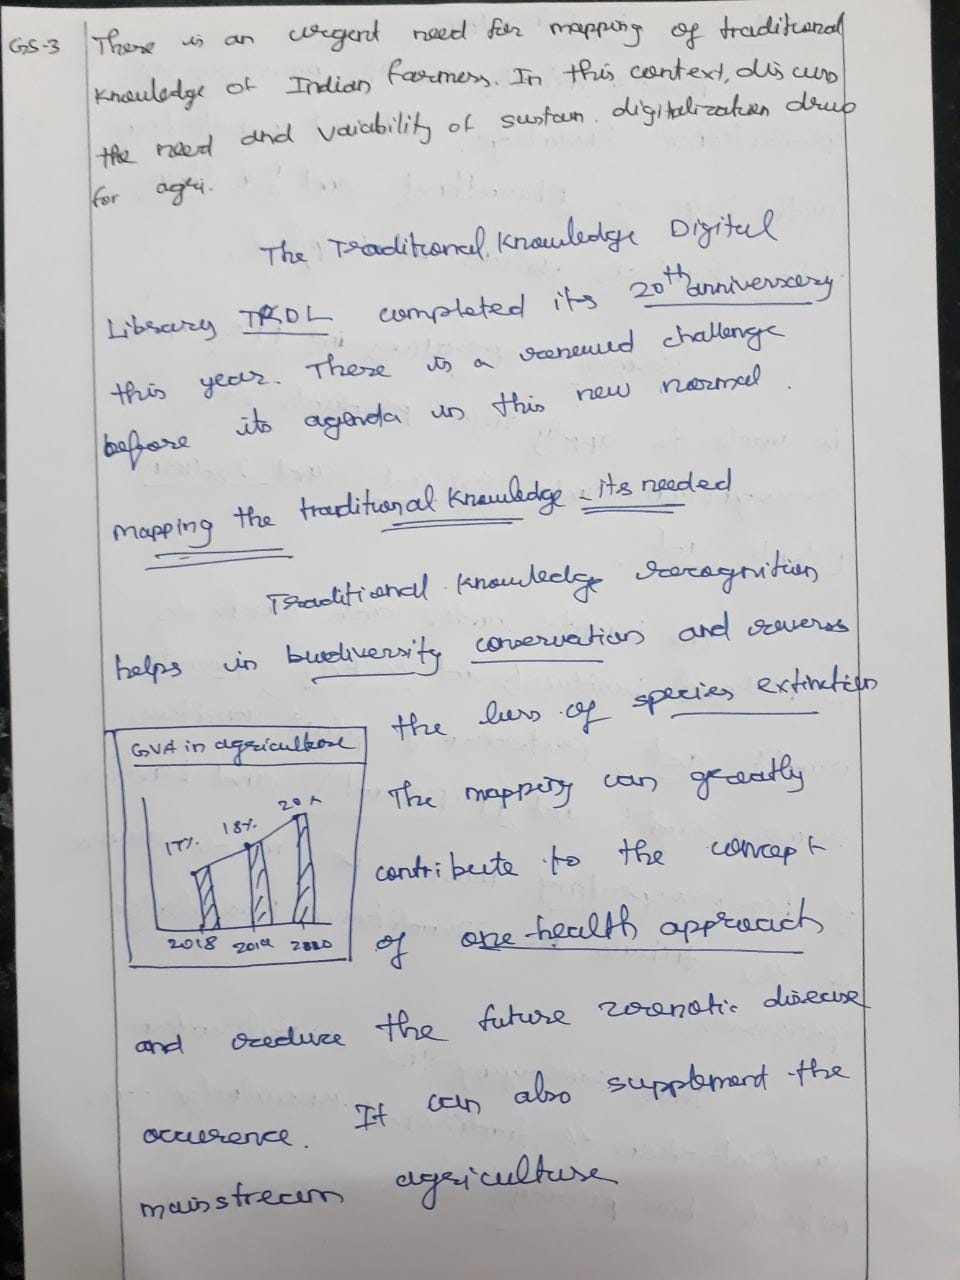 GS-3
There is an urgent need for mapping of traditional
knowledge of Indian farmers. In this context, discuss
the need and vaiability of sustain. digitalization drive
for agri.
The Traditional Knowledge Digital
Library TKDL completed its 20th anniversary
this year. There is a renewed challenge
before its agenda in this new normal.
mapping the traditional knowledge - its needed
Traditional knowledge recognition
helps in biodiversity conservation and reverse
the loss of species extinction
GVA in agriculture
17%
18%
20%
2018 2019 2020
The mapping can greatly
contribute to the concept
of one-health approach
and reduce the future zoonotic disease
occurence. It can also supplement the
mainstream agriculture